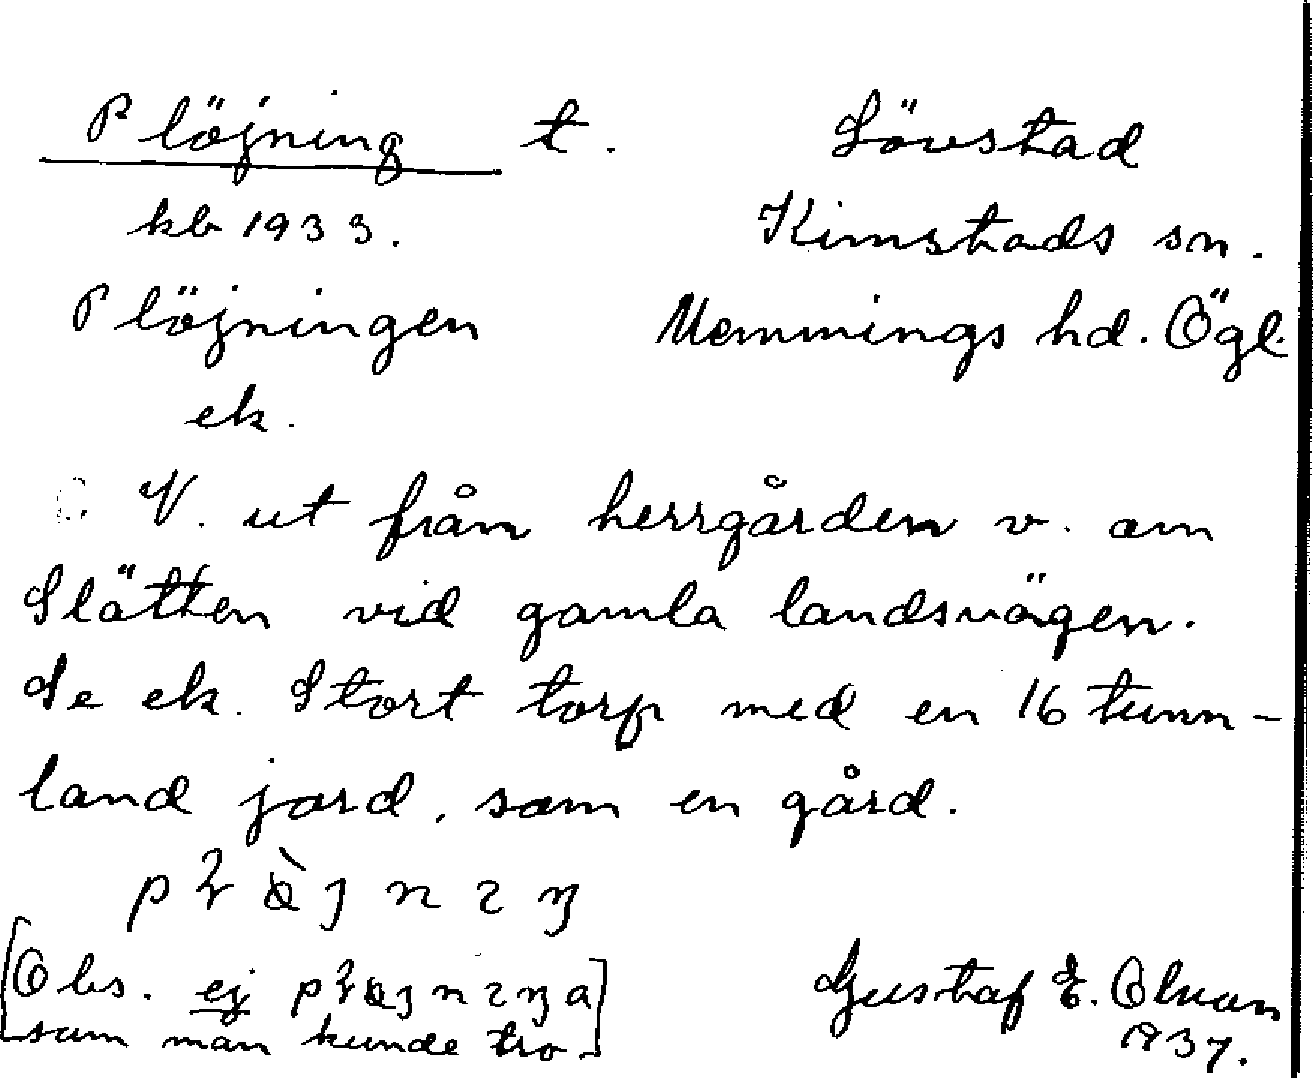 Plöjning t. Lövstad
kb 1933. Kimstads sn.
Plöjningen Memmings hd. Ögl.
ek.
V. ut från herrgården v. om
Slätten vid gamla landsvägen.
Se ek. Stort torp med en 16 tunn-
land jord, som en gård.
[Obs. ej
som man kunde tro.] Gustaf E.
1937.